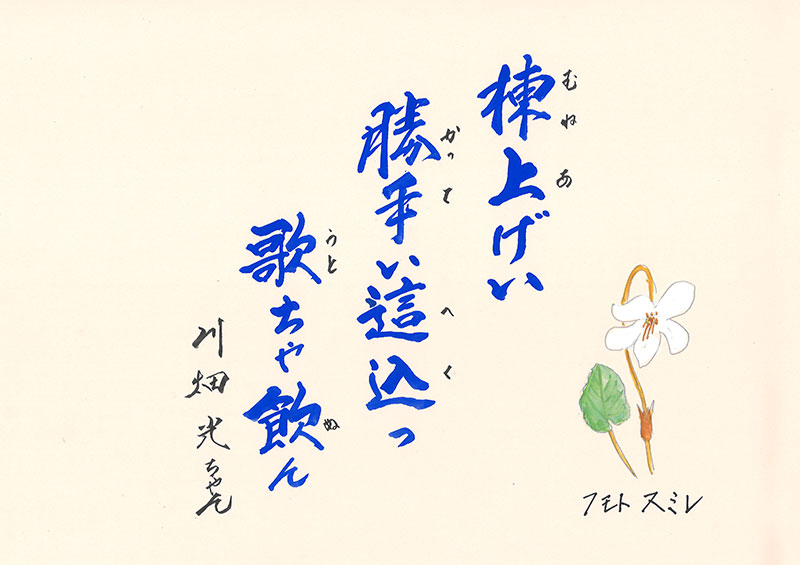 棟上げい
むねあ
勝手い這込っ
かってへく
歌ちや飲ん
うとぬ
川畑光ちゃん
フモトスミレ